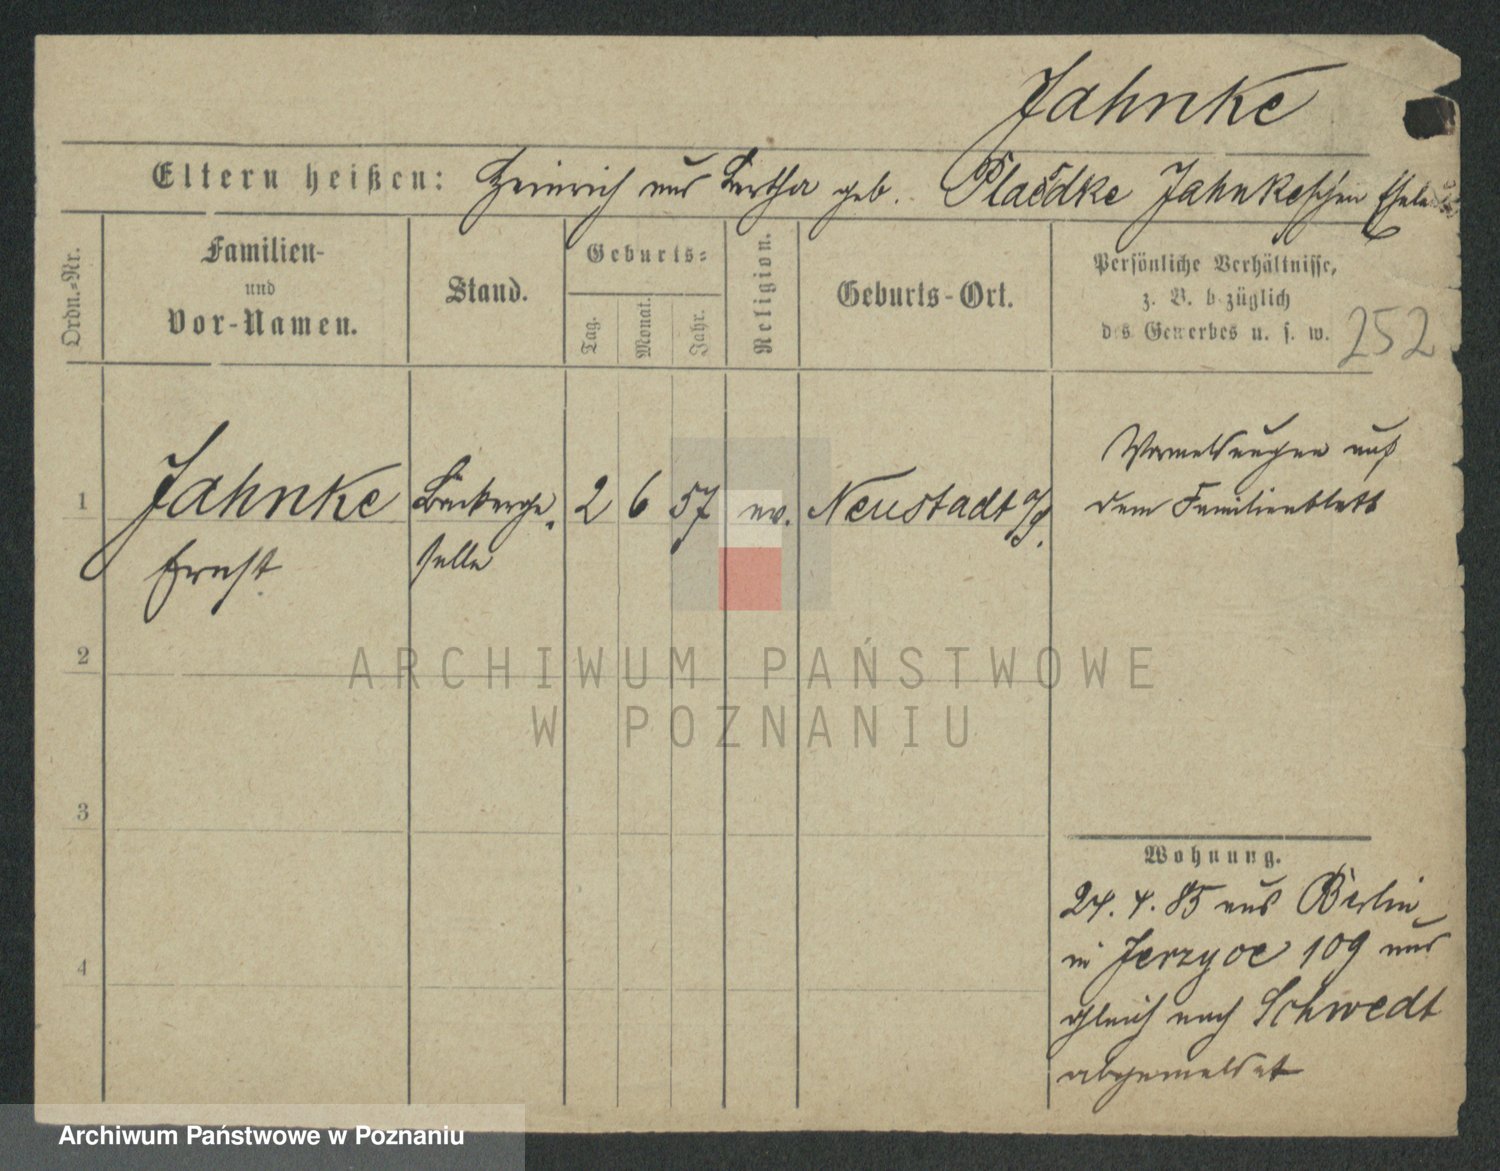 Jahnke
Eltern heißen: Heinrich und Bertha geb. Jahnkeschen
Ordn.-Nr.
Familien-
und
Vor-Namen.
Stand.
Geburts-
Tag.
Monat.
Jahr.
Religion.
Geburts-Ort.
Persönliche Verhältnisse,
z. B. bezüglich
des Gewerbes u. s. w.
252
1 Jahnke Bäckerge 2 6 57 ev. Neustadt
Ernst selle
Vormeldungen auf
dem Familienblatt
2
3
4
Wohnung.
24. 4. 85 aus Berlin
in Jerzyce 109 und
gleich nach Schwedt
abgemeldet
ARCHIWUM PAŃSTWOWE
W POZNANIU
Archiwum Państwowe w Poznaniu